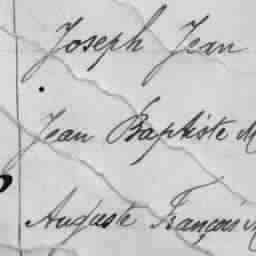 Joseph Jean
Jean Baptiste M
Auguste François